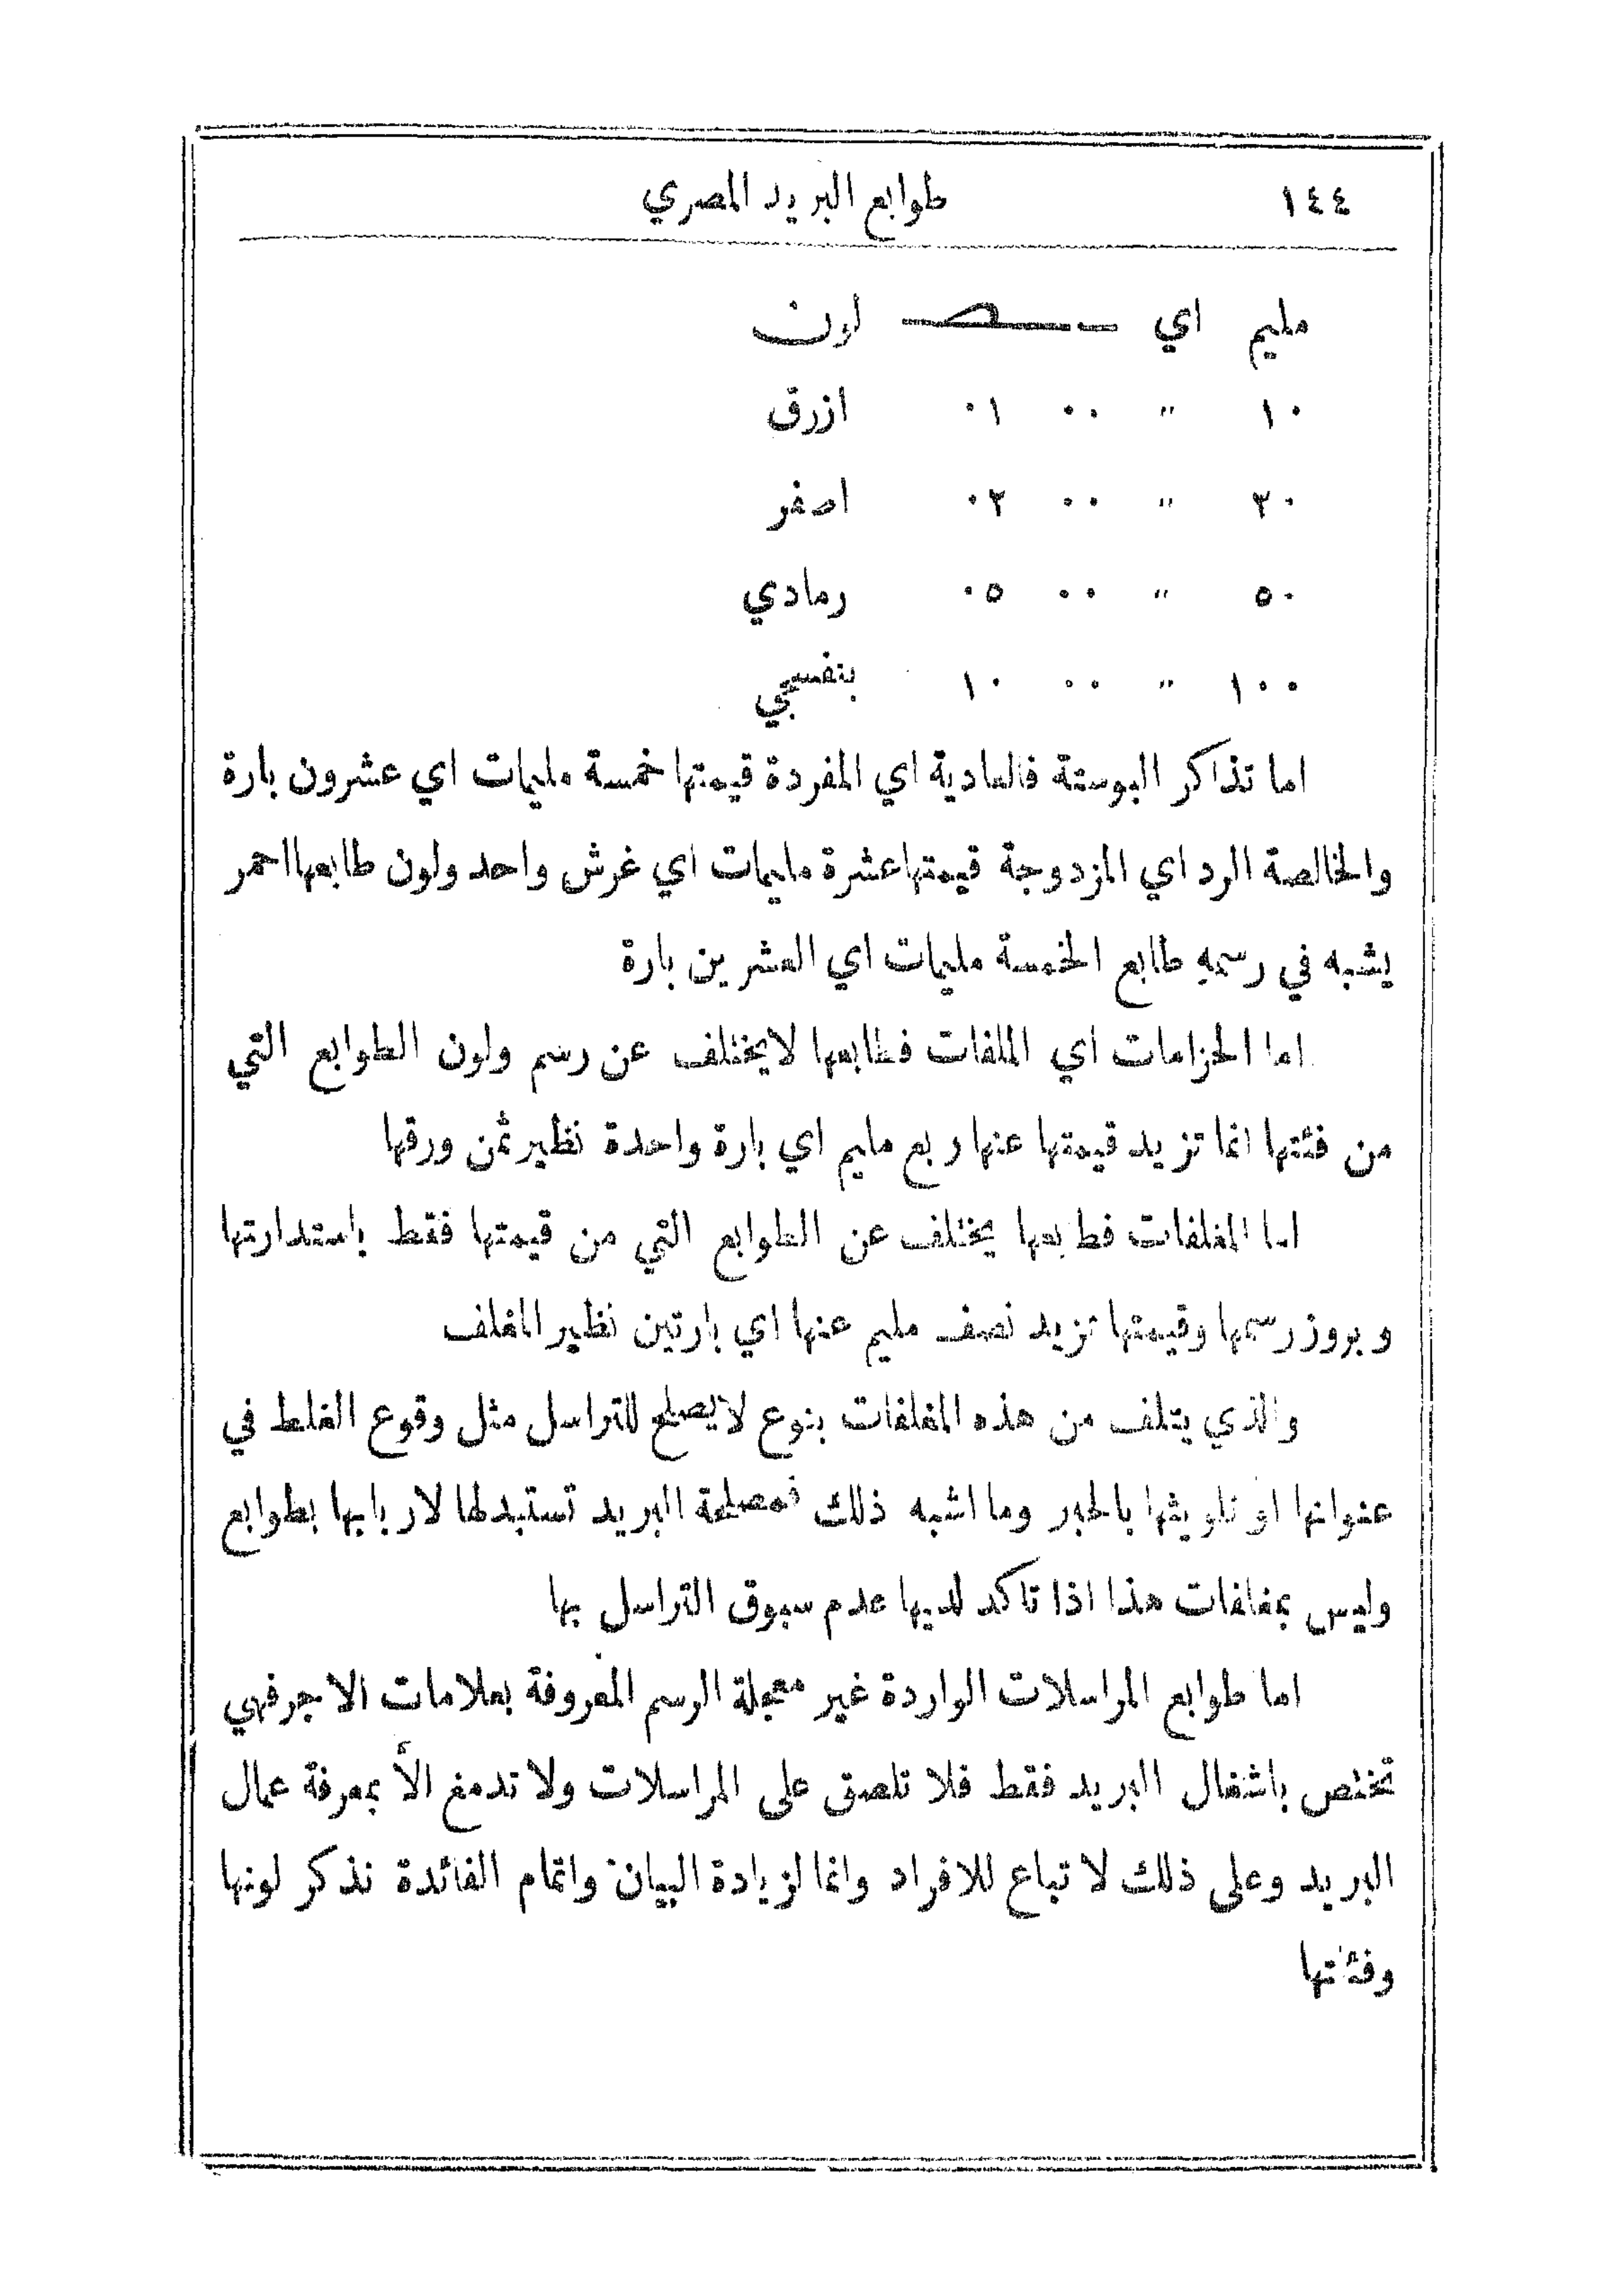 ١٤٤ طوابع البريد المصري
مليم اي لون
١٠ " ٠٠ ٠١ ازرق
٢٠ " ٠٠ ٠٢ اصفر
٥٠ " ٠٠ ٠٥ رمادي
١٠٠ " ٠٠ ١٠ بنفسجي
اما تذاكر البوستة فالعادية اي المفردة قيمتها خمسة مليمات اي عشرون بارة
والخالصة الرد اي المزدوجة قيمتها عشرة مليمات اي غرش واحد ولون طابعها احمر
يشبه في رسمهِ طابع الخمسة مليمات اي العشرين بارة
اما الحزامات اي الملفات فطابعها لا يختلف عن رسم ولون الطوابع التي
من فئتها انما تزيد قيمتها عنها ربع مليم اي بارة واحدة نظير ثمن ورقها
اما المغلفات فطابعها يختلف عن الطوابع التي من قيمتها فقط باستدارتها
وبروز رسمها وقيمتها تزيد نصف مليم عنها اي بارتين نظير المغلف
والذي يتلف من هذه المغلفات بنوع لا يصلح للتراسل مثل وقوع الغلط في
عنوانها او تلويثها بالحبر وما اشبه ذلك فمصلحة البريد تستبدلها لاربابها بطوابع
وليس بمغلفات هذا اذا تاكد لديها عدم سبوق التراسل بها
اما طوابع المراسلات الواردة غير معجلة الرسم المعروفة بعلامات الاجر فهي
تختص باشغال البريد فقط فلا تلصق على المراسلات ولا تدمغ الاَّ بمعرفة عمال
البريد وعلى ذلك لا تباع للافراد وانما لزيادة البيان واتمام الفائدة نذكر لونها
وفئتها